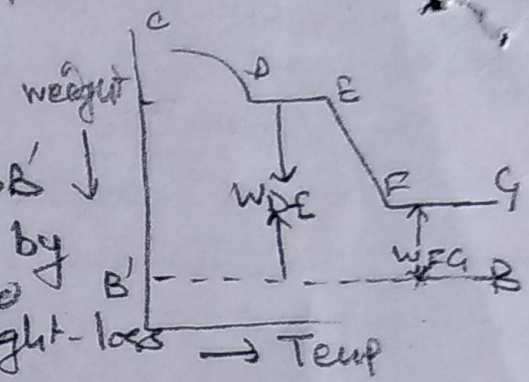 C
D
E
weight
B'
by
W_DE
F
G
W_FG
B'
B
ght-loss
→ Temp